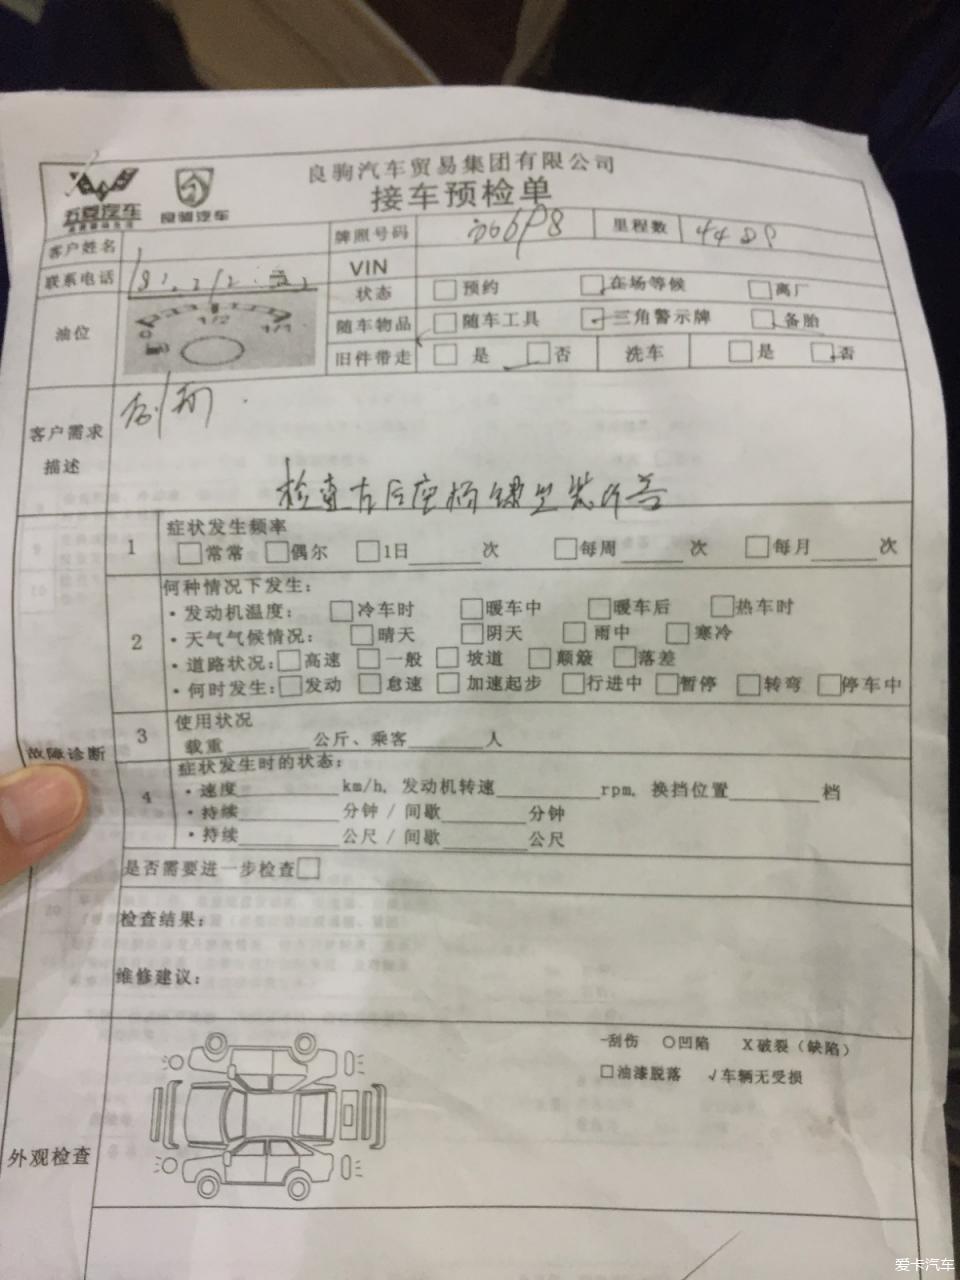 良驹汽车贸易集团有限公司
接车预检单
五菱汽车 良驹汽车
客户姓名 牌照号码 里程数
联系电话 VIN
油位 1/2 1/1 状态 □预约 □在场等候 □离厂
随车物品 □随车工具 □三角警示牌 □备胎
旧件带走 □是 □否 洗车 □是 □否
客户需求描述
检查右后座椅
故障诊断
1 症状发生频率
□常常 □偶尔 □1日______次 □每周______次 □每月______次
2 何种情况下发生:
·发动机温度: □冷车时 □暖车中 □暖车后 □热车时
·天气气候情况: □晴天 □阴天 □雨中 □寒冷
·道路状况: □高速 □一般 □坡道 □颠簸 □落差
·何时发生: □发动 □怠速 □加速起步 □行进中 □暂停 □转弯 □停车中
3 使用状况
载重______公斤、乘客______人
4 症状发生时的状态:
·速度______km/h, 发动机转速______rpm, 换挡位置______档
·持续______分钟 / 间歇______分钟
·持续______公尺 / 间歇______公尺
是否需要进一步检查□
检查结果:
维修建议:
外观检查
-刮伤 ○凹陷 X破裂(缺陷)
□油漆脱落 √车辆无受损
爱卡汽车